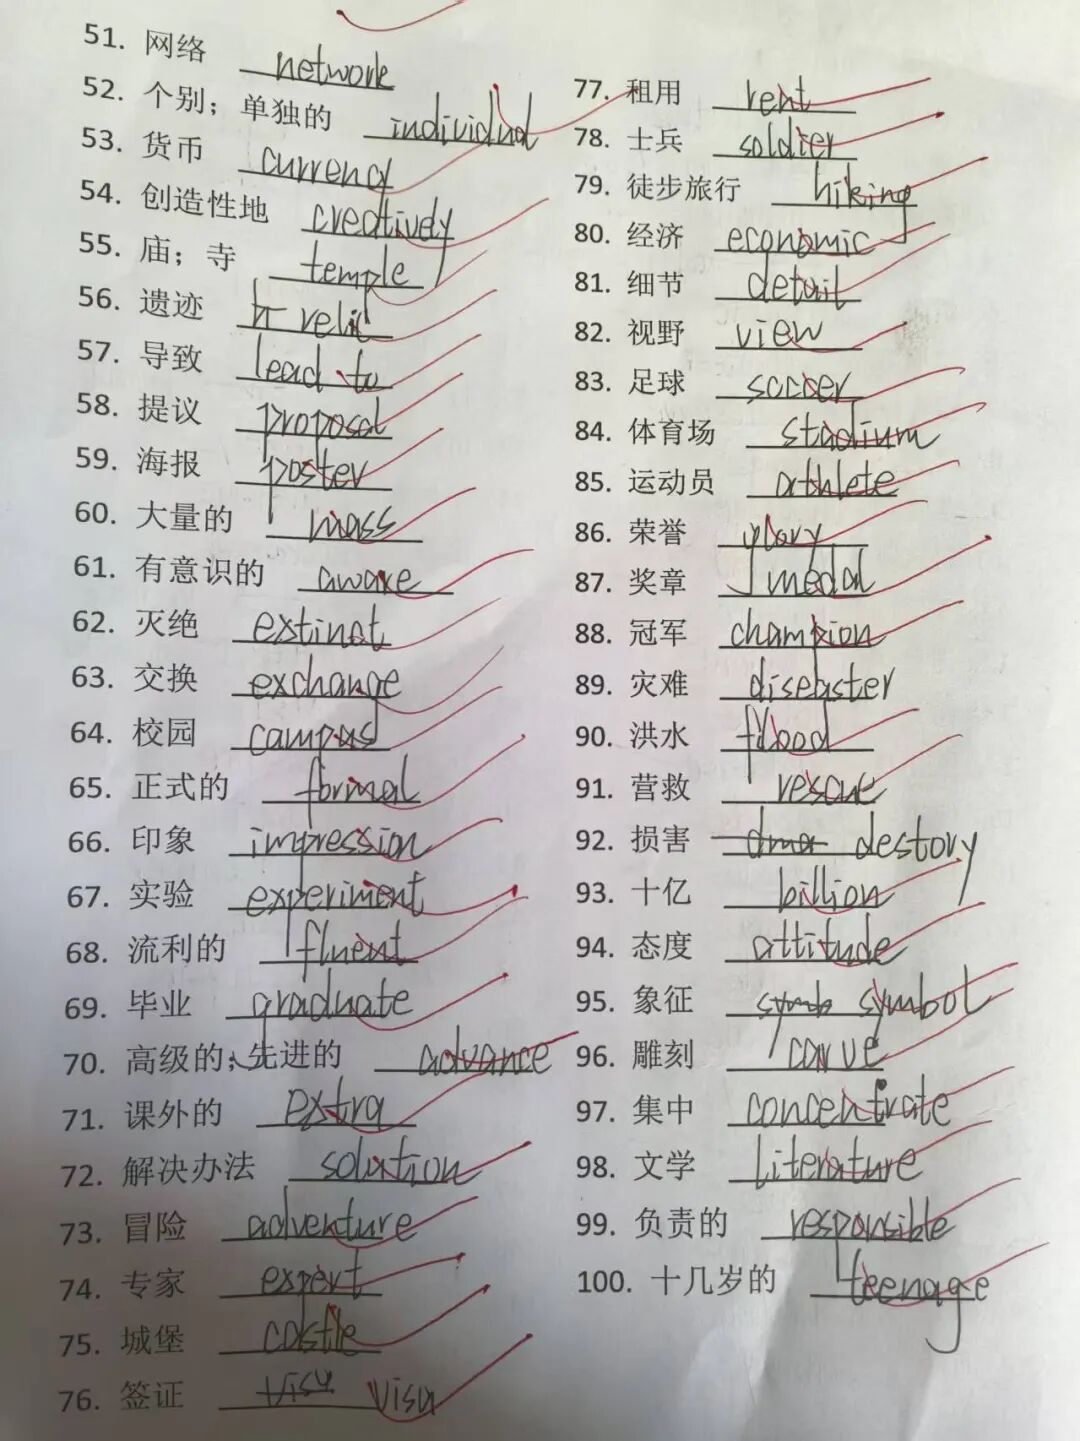 51. 网络 network
52. 个别；单独的 individual
53. 货币 currency
54. 创造性地 creatively
55. 庙；寺 temple
56. 遗迹 relic
57. 导致 lead to
58. 提议 proposal
59. 海报 poster
60. 大量的 mass
61. 有意识的 aware
62. 灭绝 extinct
63. 交换 exchange
64. 校园 campus
65. 正式的 formal
66. 印象 impression
67. 实验 experiment
68. 流利的 fluent
69. 毕业 graduate
70. 高级的；先进的 advance
71. 课外的 extra
72. 解决办法 solution
73. 冒险 adventure
74. 专家 expert
75. 城堡 castle
76. 签证 visa visa
77. 租用 rent
78. 士兵 soldier
79. 徒步旅行 hiking
80. 经济 economic
81. 细节 detail
82. 视野 view
83. 足球 soccer
84. 体育场 stadium
85. 运动员 athlete
86. 荣誉 glory
87. 奖章 medal
88. 冠军 champion
89. 灾难 disebster
90. 洪水 flood
91. 营救 rescue
92. 损害 destory
93. 十亿 billion
94. 态度 attitude
95. 象征 symb symbol
96. 雕刻 carve
97. 集中 concentrate
98. 文学 literature
99. 负责的 responsible
100. 十几岁的 teenage